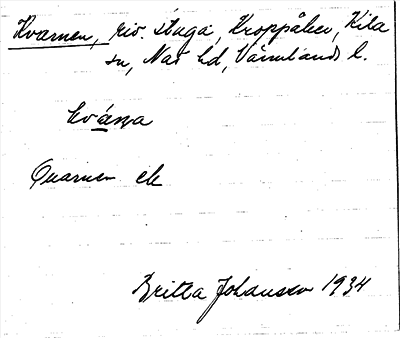 Kvarnen, riv. stuga, Kroppåker, Kila
sn, Näs hd, Värmlands l.
kvá̱ṇa
Quarnen ek
Britta Johansson 1934